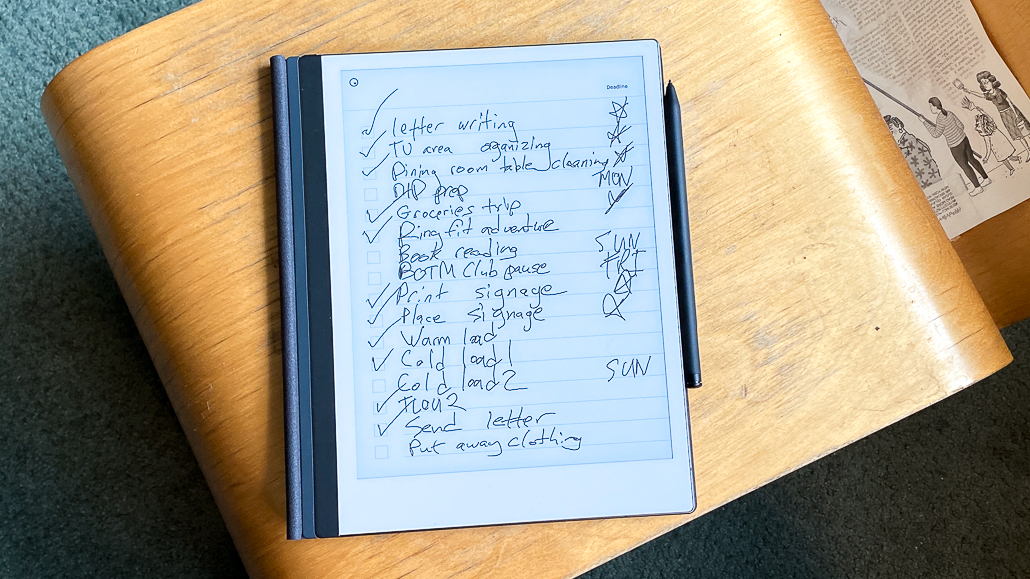 Deadline
letter writing
TV area organizing
Dining room table cleaning
prep MON
Groceries trip
Ring fit adventure
Book reading SUN
BOTM Club pause FRI
Print signage
Place signage
Warm load
Cold load 1
Cold load 2 SUN
Send letter
Put away clothing